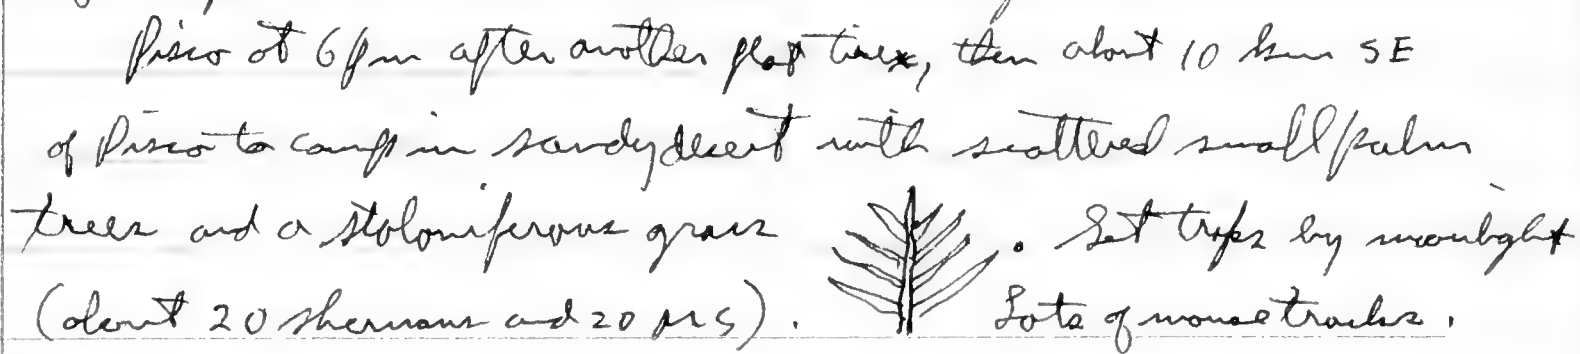 Pisco at 6pm after another flat tire, then about 10 km SE
of Pisco to camp in sandy desert with scattered small palm
trees and a stoloniferous grass . Set traps by moonlight
(about 20 shermans and 20 MS). Lots of mouse tracks.